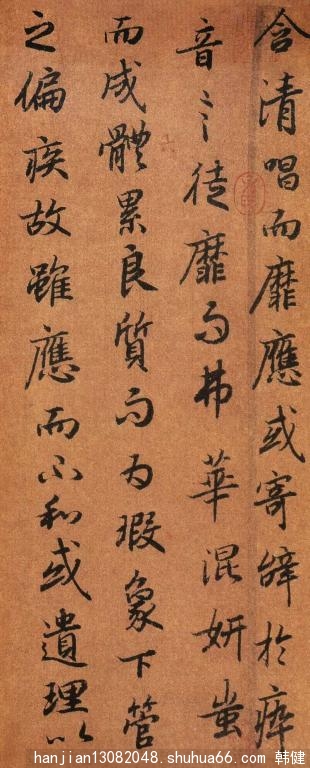 含清唱而靡應或寄辭於瘁
音言徒靡而弗華混妍蚩
而成體累良質而為瑕象下管
之偏疾故雖應而不和或遺理以
hanjian13082048.shuhua66.com 韩健